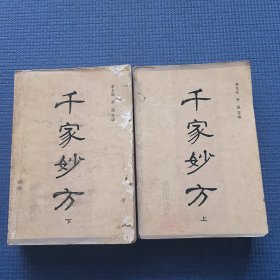 千家妙方
下
千家妙方
上